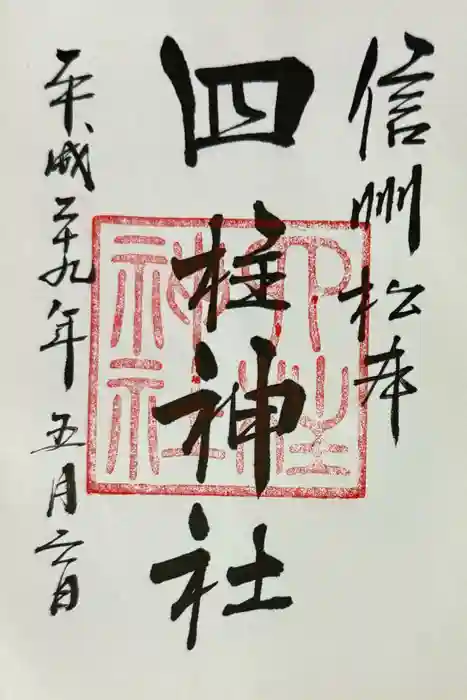 信州松本
四柱神社
平成二十九年 五月日
四柱
神社